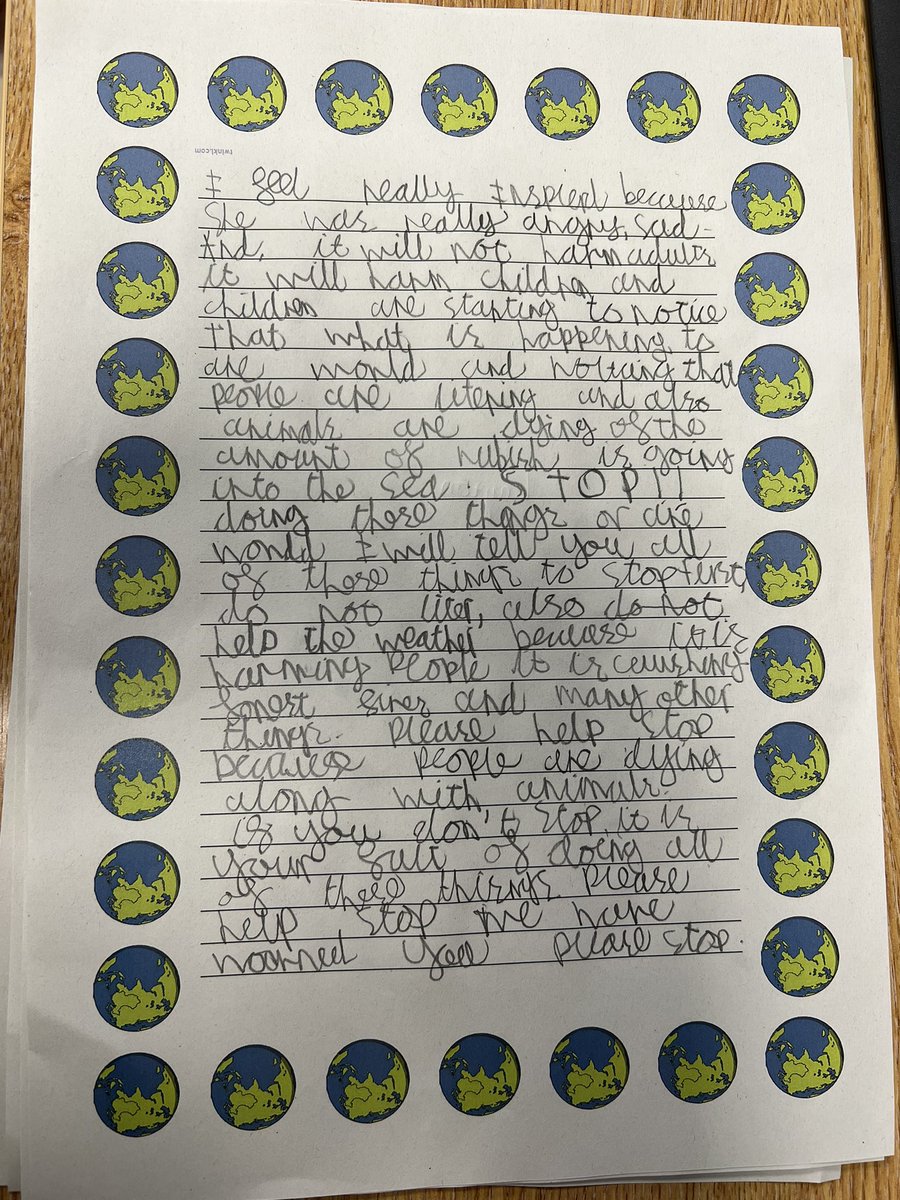 twinkl.com
I feel really Inspierd because
She was really angry, sad.
And, it will not harm adults
it will harm children and
children are starting to notice
that what is happening to
are world and noticing that
people are litering and also
animals are dying of the
amount of rubish is going
into the sea. STOP!!
doing these things or are
world I will tell you all
of these things to stop first,
do not liter, also do not
help the weather because it is
harming people it is caushing
forest fires and many other
things. please help stop
because people are dying
along with animals.
if you don't stop it is
your fult of doing all
of these things. Please
help stop we have
woorned you please stop.